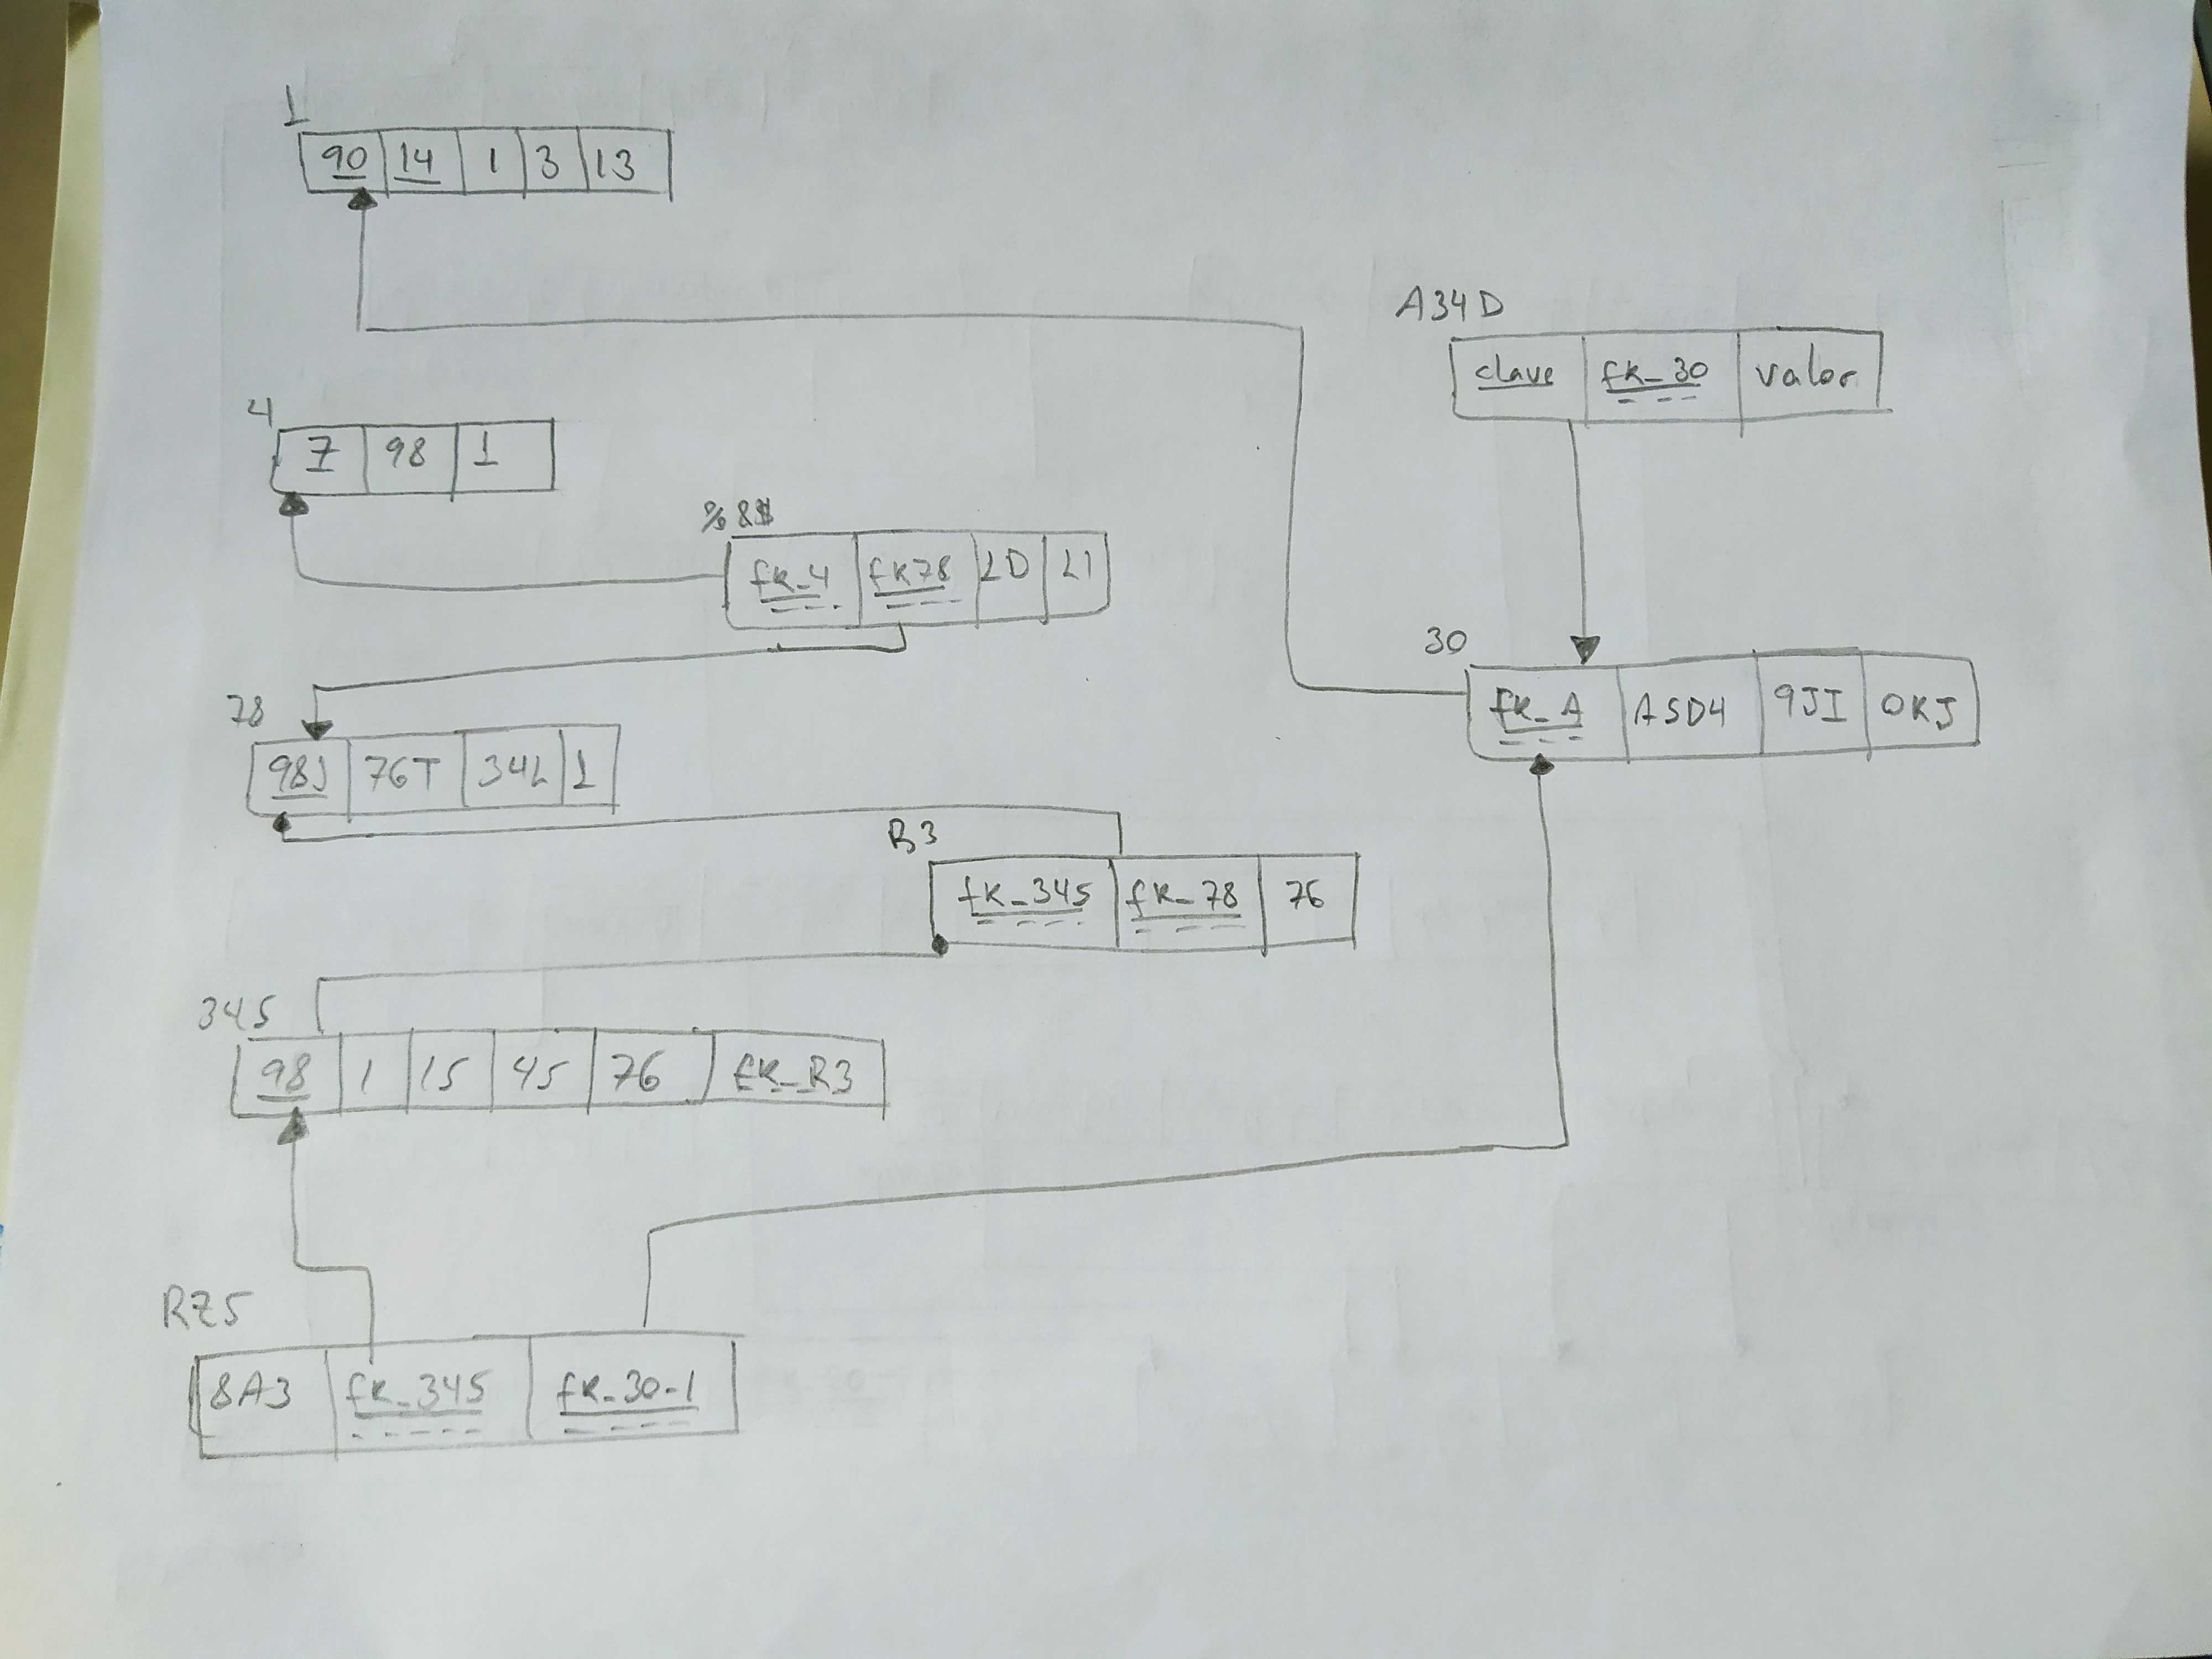 1
90 14 1 3 13
A34D
clave fk_30 valor
4
7 98 1
%8$
fk_4 fk78 LD L1
30
fk_A ASD4 9JI OKJ
78
98J 76T 34L 1
R3
fk_345 fk_78 76
345
98 1 15 45 76 fk_R3
RZ5
8A3 fk_345 fk_30-1